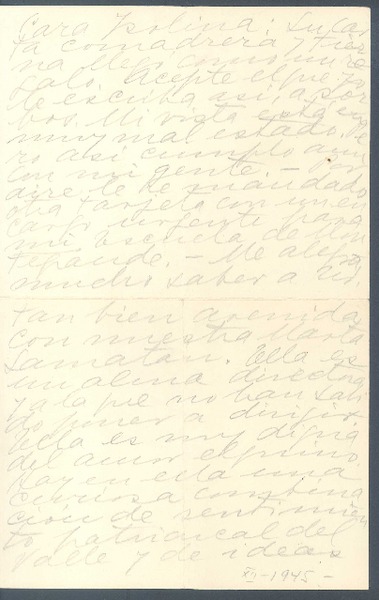 Cara Isolina: Su car
ta comadrera y tier
na llegó como un re
galo. Acepte el que yo
le escriba así, a sor
bos. Mi vista está en
muy mal estado. Pe
ro así cumplo aun
con mi gente. — Por
aire le he mandado
otra tarjeta con un en
cargo urgente para
mi escuela de Mon
tegrande. — Me alegro
mucho saber a Ud.
tan bien avenida
con nuestra Marta
Samatán. Ella es
un alma directora
y a la que no han sabi
do poner a dirigir.
Ella es muy digna
del amor elquino.
Hay en ella una
curiosa combina
ción de sentimien
to patriarcal del
Valle y de ideas
XI-1945-